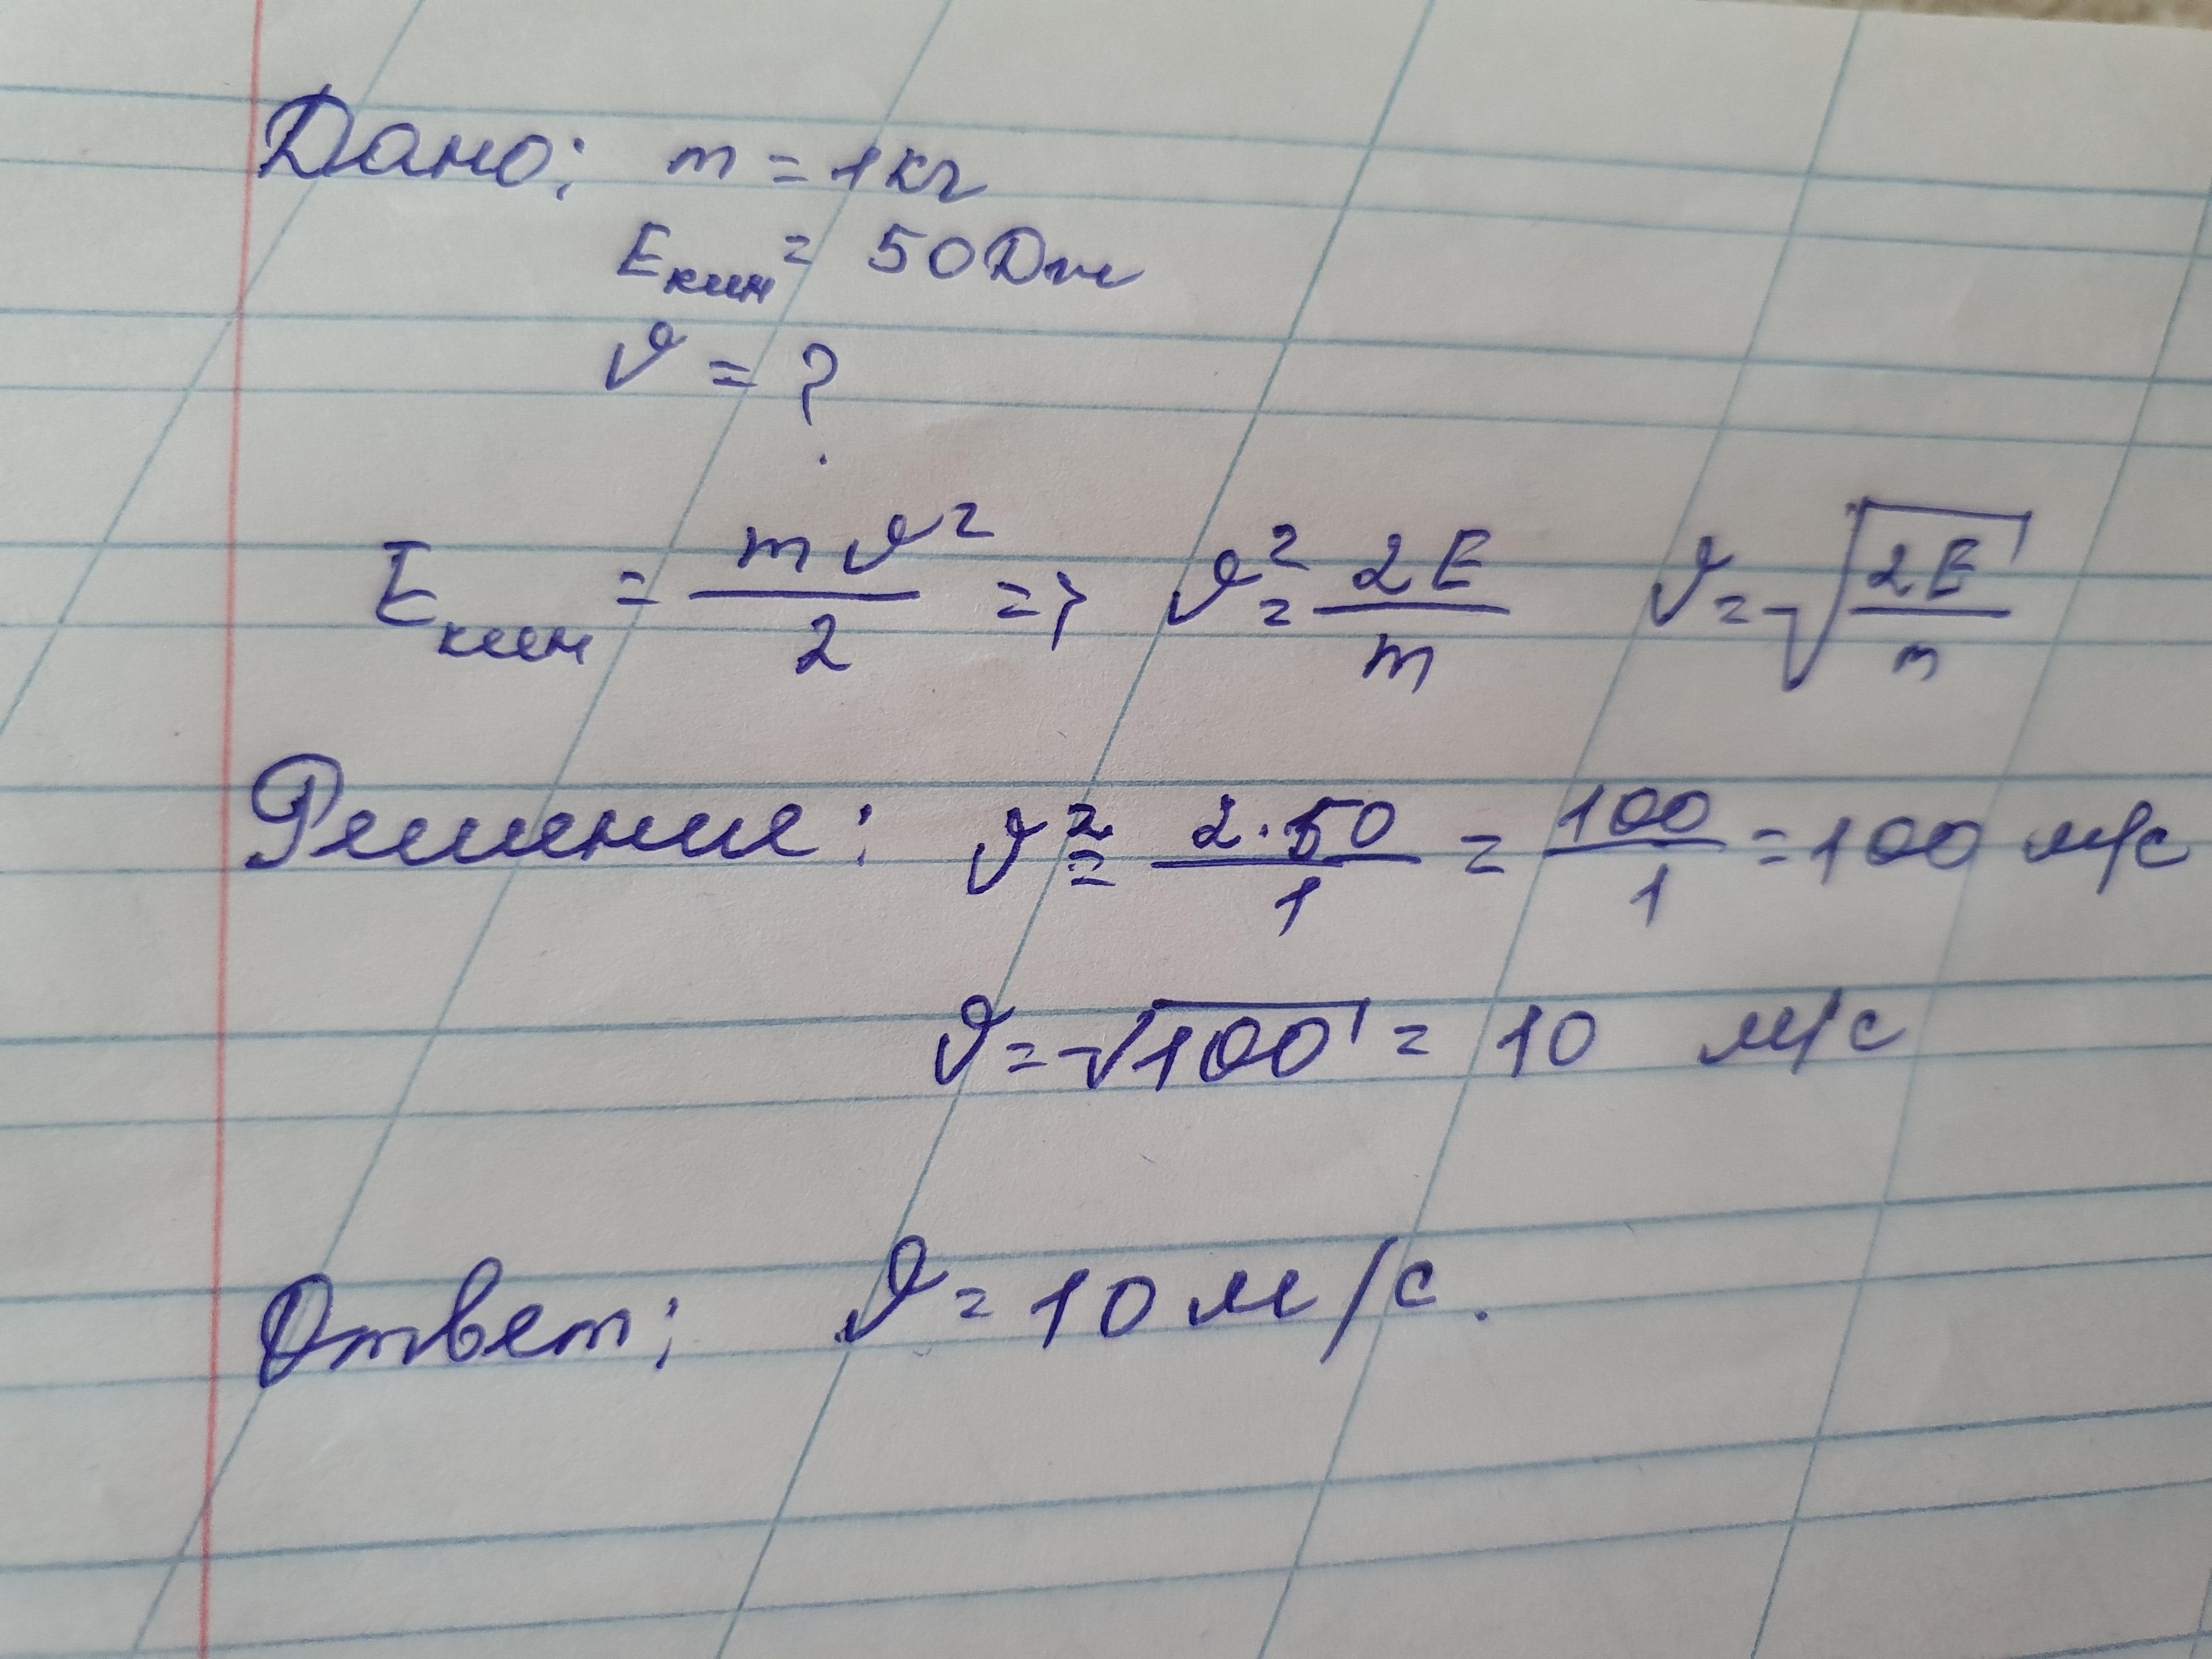 Дано: m = 1кг
Eкин = 50Дж
v = ?
Eкин = mv²/2 => v² = 2E/m v = √(2E/m)
Решение: v² = 2·50/1 = 100/1 = 100 м/с
v = √100 = 10 м/с
Ответ: v = 10 м/с.